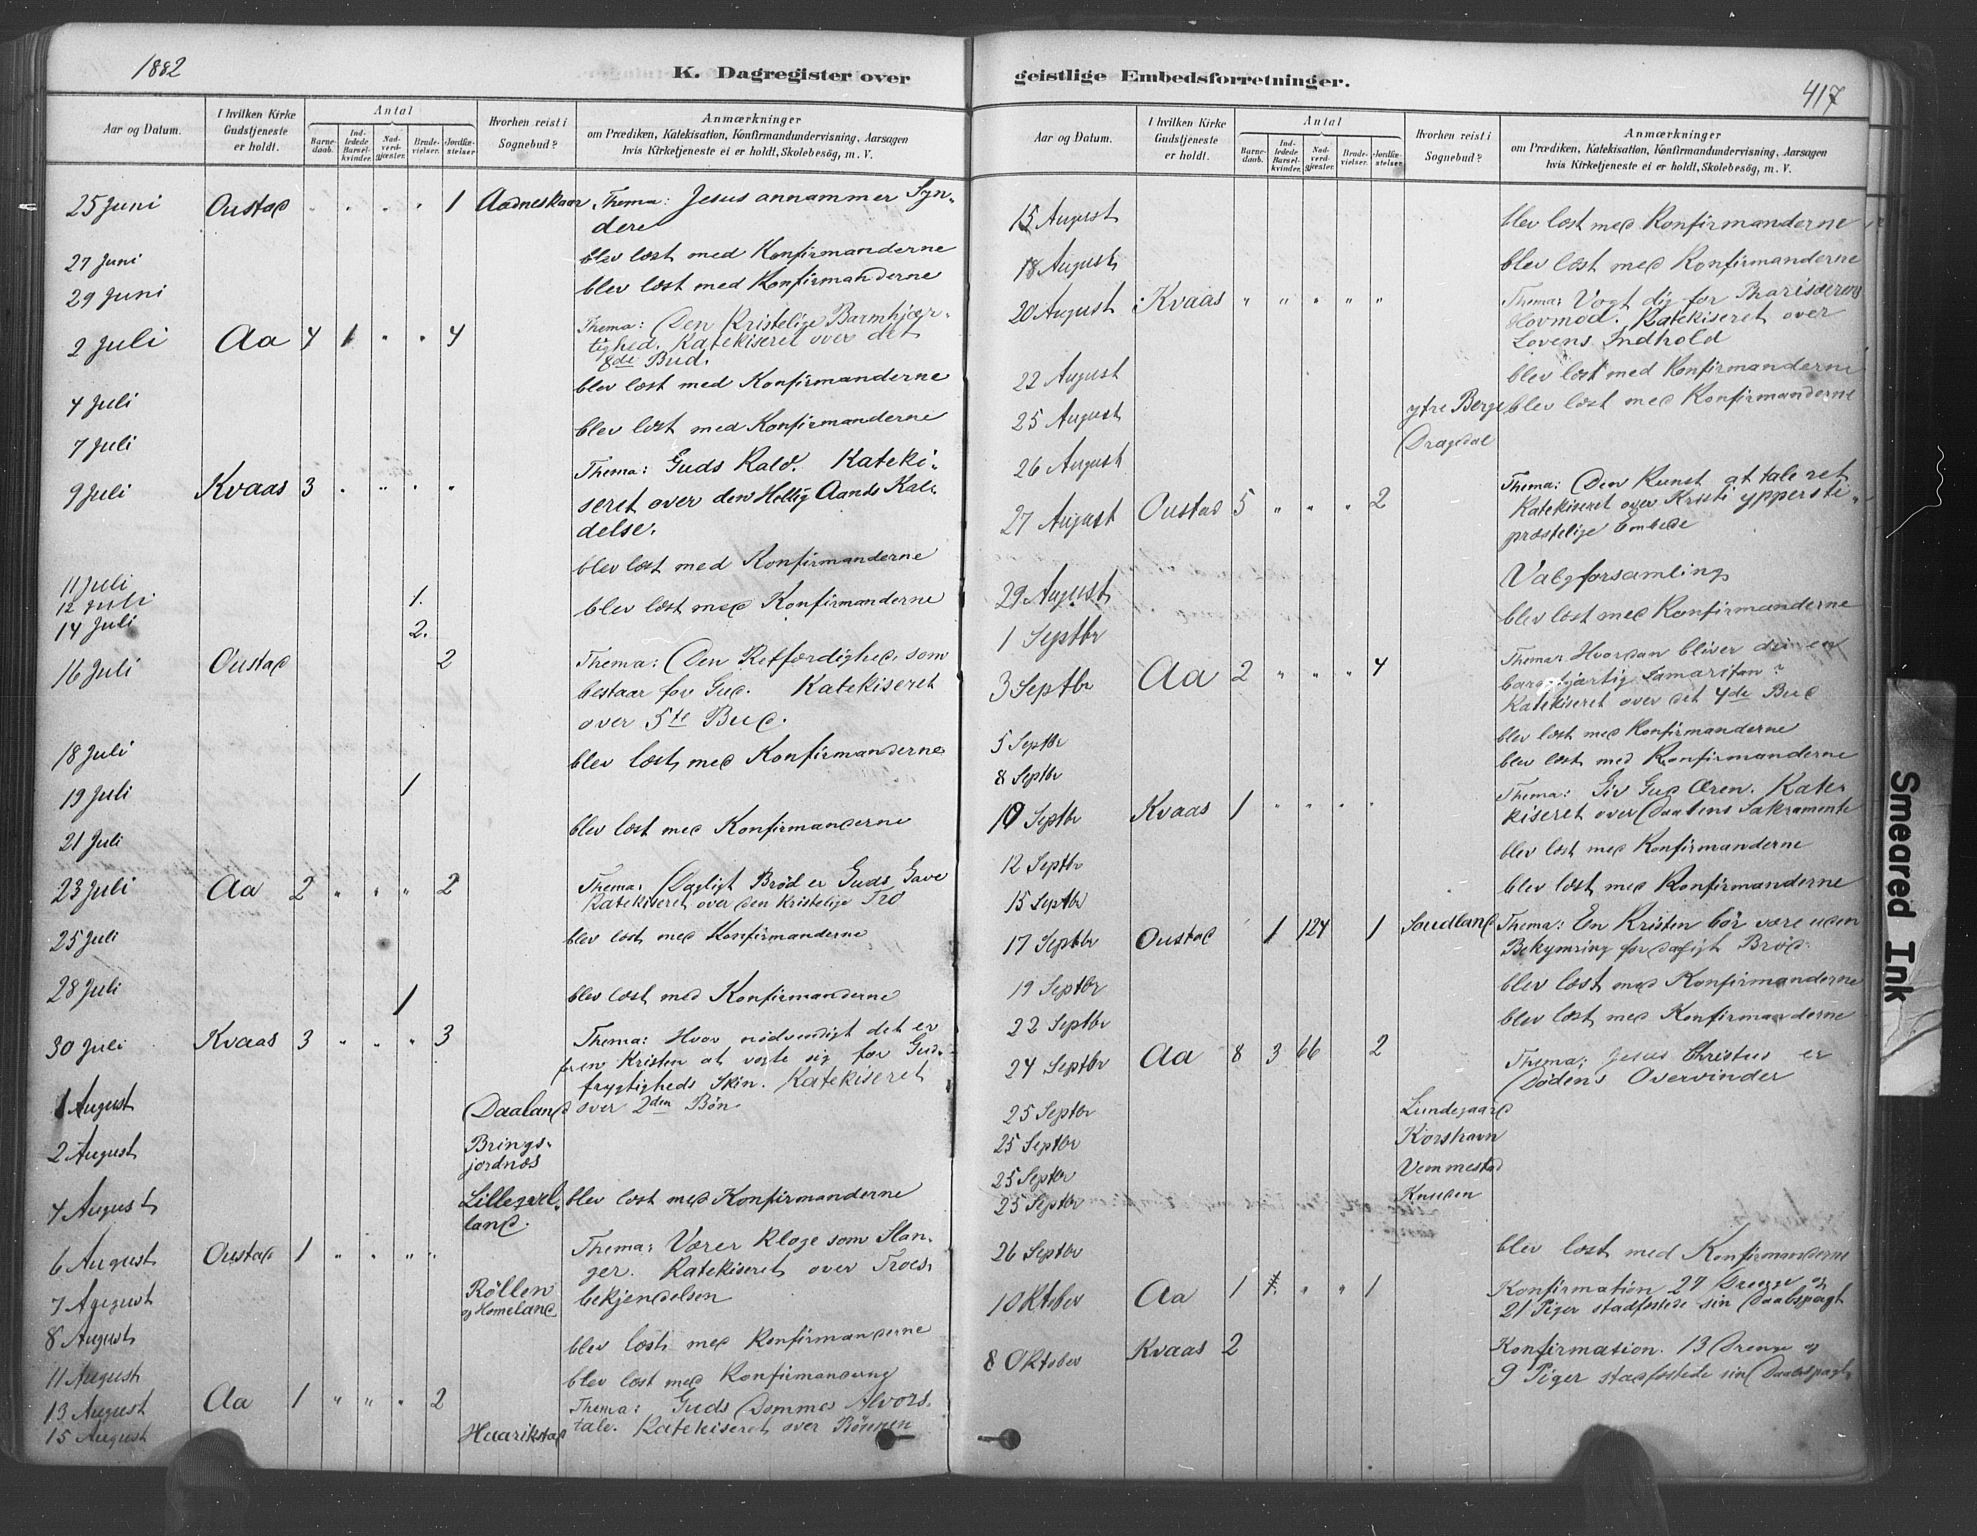 1882
K. Dagregister over
Aar og Datum.
I hvilken Kirke Gudstjeneste er holdt.
Antal
Barnedaab.
Indledede Barselkvinder.
Nadverdgjæster.
Brudevielser.
Jordfæstelser
Hvorhen reist i Sognebud?
Anmærkninger
om Prædiken, Katekisation, Konfirmandundervisning, Aarsagen
hvis Kirketjeneste ei er holdt, Skolebesøg, m. V.
25 Juni Oustad . . . . 1 Aadneskaar Thema: Jesus annammer Syn-
dere
27 Juni blev læst med Konfirmanderne
29 Juni blev læst med Konfirmanderne
2 Juli Aa 4 1 " " 4 Thema: Den Kristelige Barmhjær-
tighed. Katekiseret over det
8de Bud.
4 Juli blev læst med Konfirmanderne
7 Juli blev læst med Konfirmanderne
9 Juli Kvaas 3 . " . . Thema: Guds Kald. Kateki-
seret over den Hellig Aands Kal-
delse.
11 Juli blev læst med Konfirmanderne
12 Juli 1.
14 Juli 2. blev læst med Konfirmanderne
16 Juli Oustad 2 Thema: Den Retfærdighed, som
bestaar for Gud. Katekiseret
over 5te Bud.
18 Juli blev læst med Konfirmanderne
19 Juli 1
21 Juli blev læst med Konfirmanderne
23 Juli Aa 2 " " " 2 Thema: Dagligt Brød er Guds Gave
Katekiseret over den Kristelige Tro
25 Juli blev læst med Konfirmanderne
28 Juli 1 blev læst med Konfirmanderne
30 Juli Kvaas 3 " " " 3 Thema: Hvor nødvendigt det er
for en Kristen at vogte sig for Gud-
frygtigheds Skin. Katekiseret
1 August Daaland over 2den Bøn.
2 August Brings-
jordnæs
4 August blev læst med Konfirmanderne
land.
6 August Oustad 1 " " " " Thema: Værer kloge som Slan-
ger. Katekiseret over Troes-
7 August Røllen bekjendelsen
og Homeland
8 August blev læst med Konfirmanderne
11 August blev læst med Konfirmanderne
13 August Aa 1 " " " 2 Thema: Guds Dommes Alvors-
15 August Haarikstad tale. Katekiseret over Bønnen
geistlige Embedsforretninger.
417
Aar og Datum.
I hvilken Kirke Gudstjeneste er holdt.
Antal
Barnedaab.
Indledede Barselkvinder.
Nadverdgjæster.
Brudevielser.
Jordfæstelser
Hvorhen reist i Sognebud?
Anmærkninger
om Prædiken, Katekisation, Konfirmandundervisning, Aarsagen
hvis Kirketjeneste ei er holdt, Skolebesøg, m. V.
15 August blev læst med Konfirmanderne
18 August blev læst med Konfirmanderne
20 August Kvaas " " " " " Thema: Vogt dig for Pharisæerens
Hovmod. Katekiseret over
Lovens Indhold
22 August blev læst med Konfirmanderne
25 August ytre Berge blev læst med Konfirmanderne
26 August Dragedal
27 August Oustad 5 " " " 2 Thema: Den Kunst at tale ret
Katekiseret over Kristi yppersti-
præstelige Embede
29 August Valgforsamling
1 Septbr blev læst med Konfirmanderne
3 Septbr Aa 2 " " " 4 Thema: Hvordan bliver du en
barmhjærtig Samaritan?
Katekiseret over det 4de Bud
5 Septbr blev læst med Konfirmanderne
8 Septbr blev læst med Konfirmanderne
10 Septbr Kvaas 1 " " " " Thema: Giv Gud Æren. Kate-
kiseret over Daabens Sakramente
12 Septbr blev læst med Konfirmanderne
15 Septbr blev læst med Konfirmanderne
17 Septbr Oustad 1 124 1 Saudland Thema: En Kristen bør være uden
Bekymring for dagligt Brød.
19 Septbr blev læst med Konfirmanderne
22 Septbr blev læst med Konfirmanderne
24 Septbr Aa 8 3 66 2 Thema: Jesus Christus er
Dødens Overvinder
25 Septbr Lundegaard
25 Septbr Korshavn
25 Septbr Vemmestad
25 Septbr Knuden
26 Septbr blev læst med Konfirmanderne
1 Oktober Aa 1 " " 1 Konfirmation 27 Drenge og
21 Piger stadfæstede sin Daabspagt
8 Oktober Kvaas 2 Konfirmation. 13 Drenge og
9 Piger stadfæstede sin Daabspagt
Smeared Ink